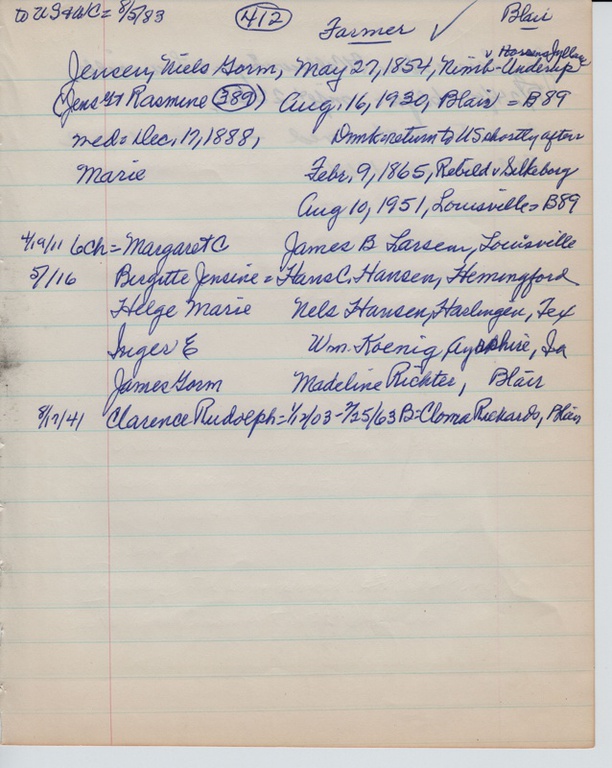 to US & WC = 8/5/83 412 Farmer ✓ Blair
Jensen, Niels Gorm, May 27, 1854, Nimb - Underup v Horsens, Jylland
(Jens G & Rasmine 389) Aug. 16, 1930, Blair = B89
med = Dec. 17, 1888, Dmk = return to US shortly after
Marie Febr. 9, 1865, Rebild v Silkeborg
Aug 10, 1951, Louisville = B89
4/19/11 6ch = Margaret C James B Larsen, Louisville
5/1/16 Birgitte Jensine = Hans C. Hansen, Hemingford
Helge Marie Nels Hansen, Harlingen, Tex
Inger E Wm. Koenig, Ayrshire, Ia
James Gorm Madeline Richter, Blair
8/17/41 Clarence Rudolph = 1/12/03 - 7/25/63 B = Cloma Rickards, Blair